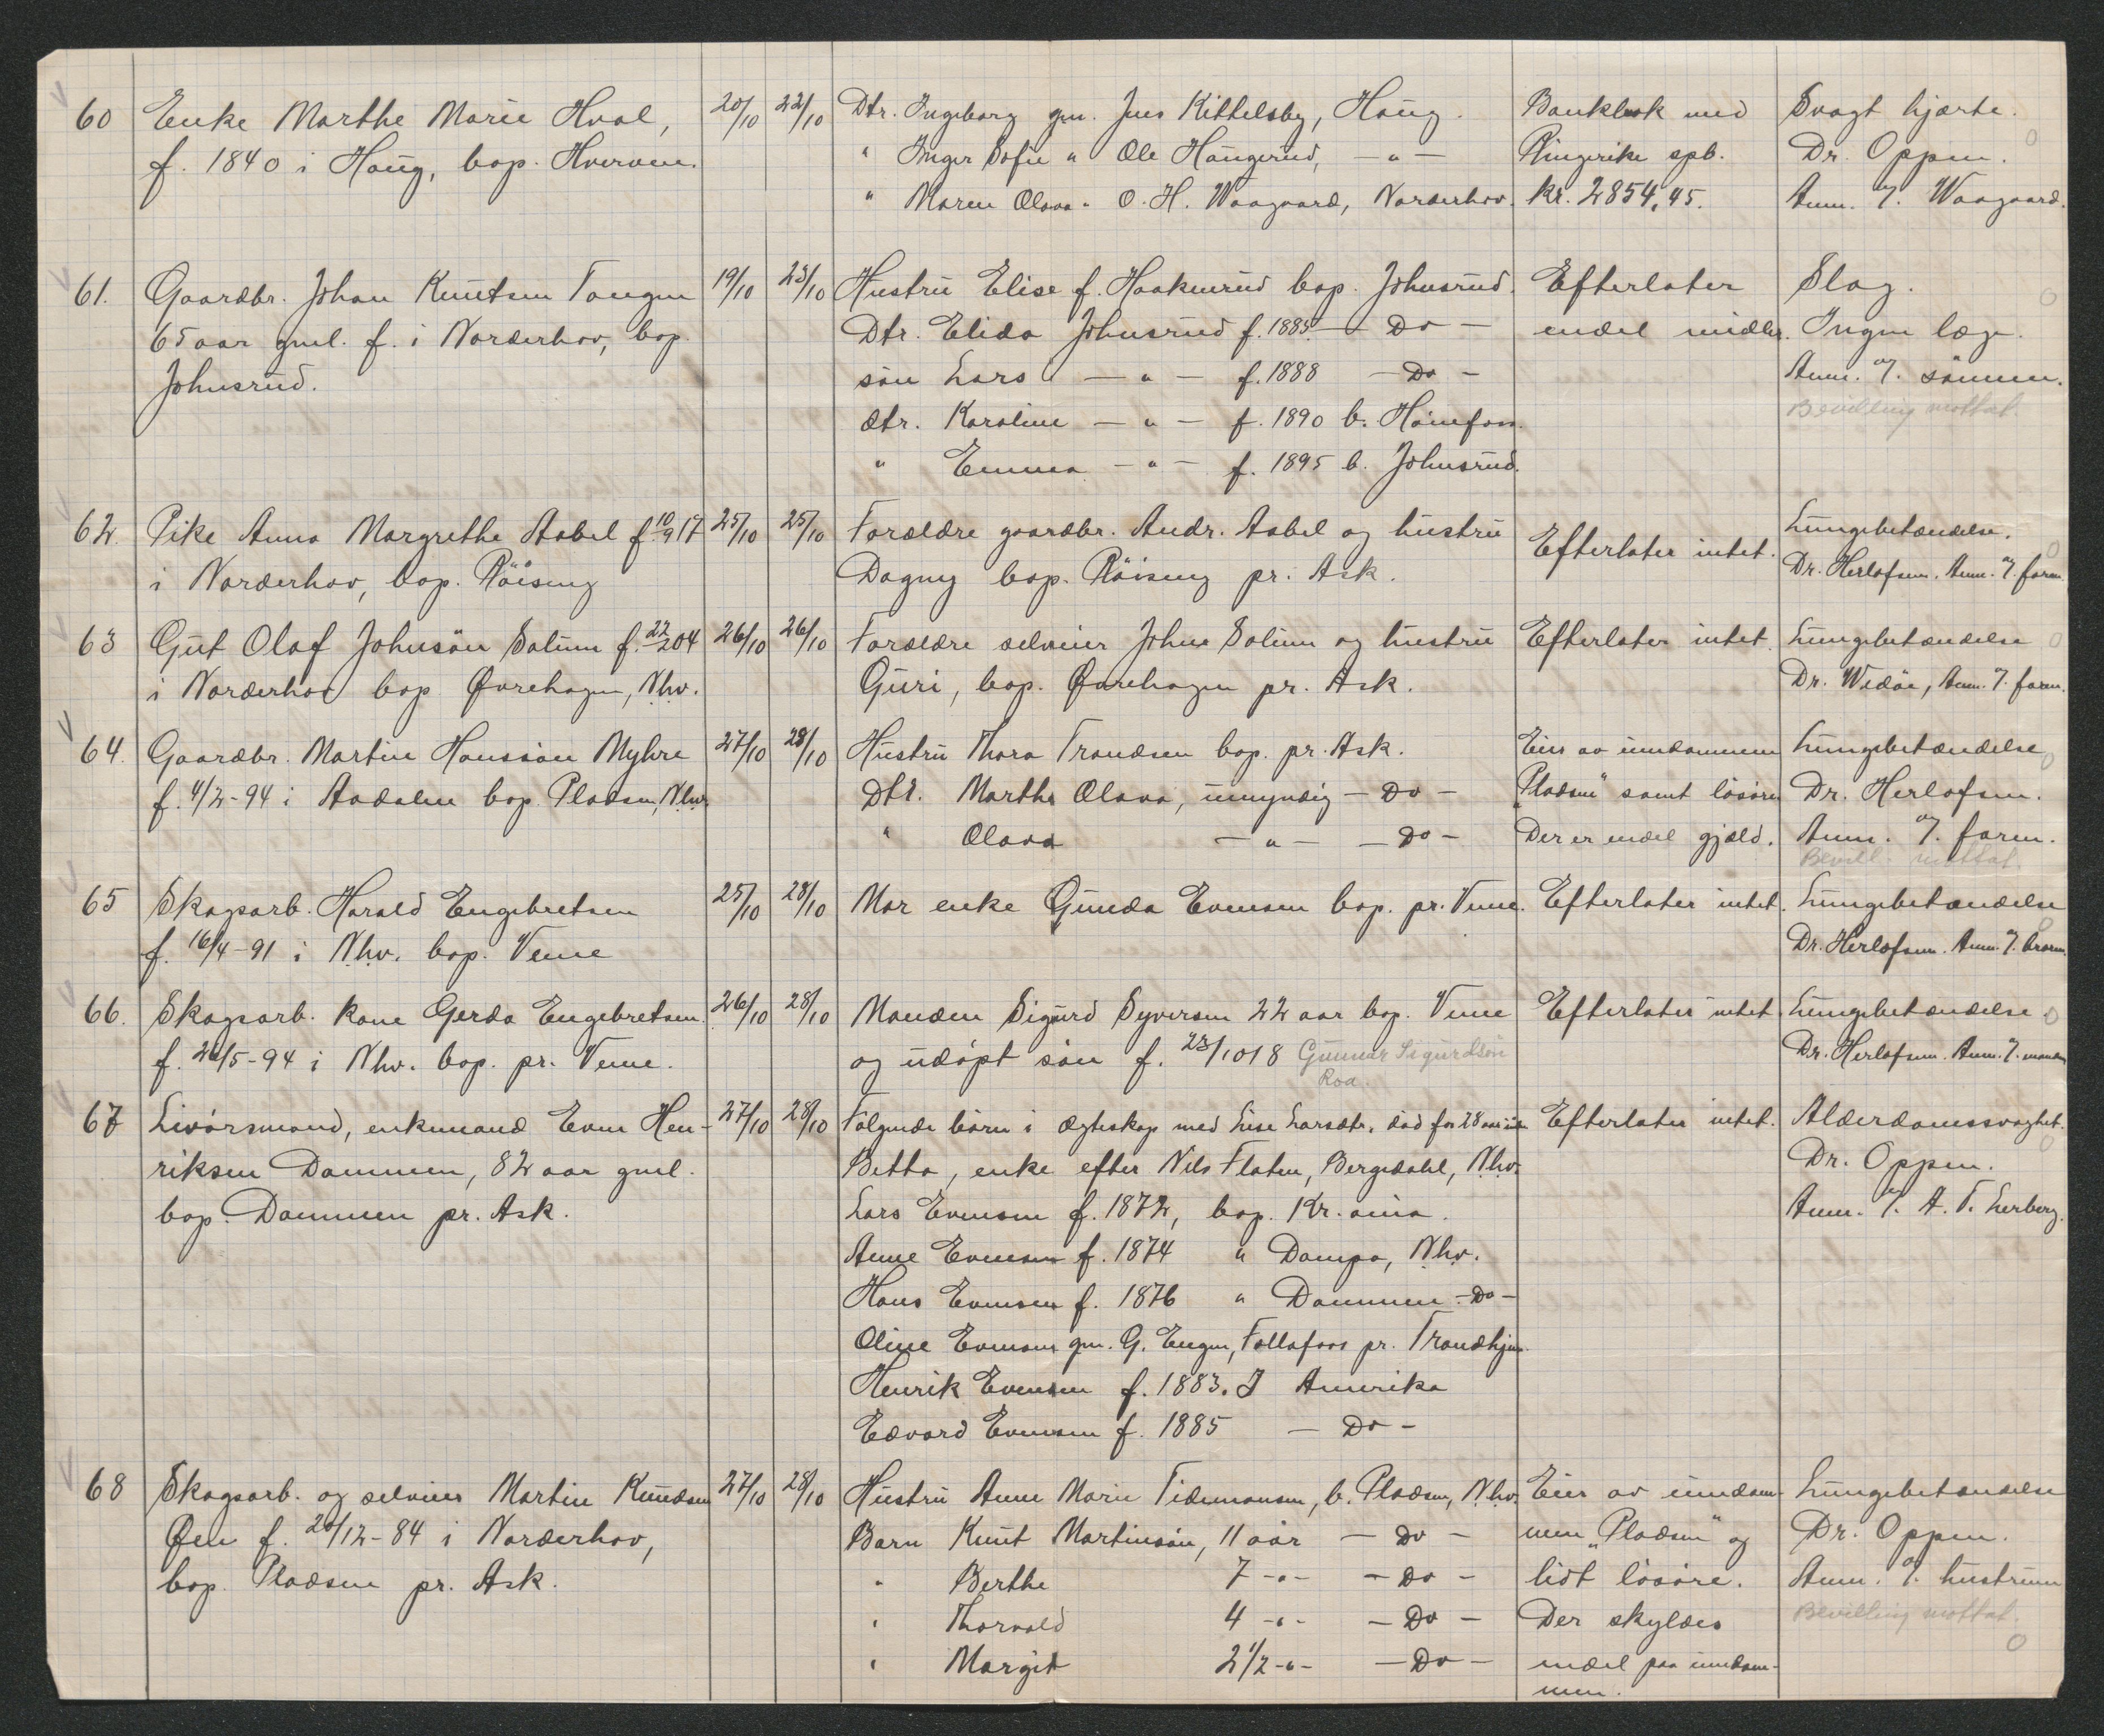 60 Enke Marthe Marie Hval, 20/10 22/10 Dtr. Ingeborg gm. Jens Kittelsby, Haug. Bankbok med Svagt hjærte.
f. 1840 i Haug, bop. Hverven. " Inger Sofie " Ole Haugerud, — " — Ringerike spb. Dr. Oppen.
" Maren Olava " O. H. Waagaard, Norderhov. kr. 2854,45. Anm. af. Waagaard.
61. Gaardbr. Johan Knutsen Tangen 19/10 23/10 Hustru Elise f. Haakenrud bop. Johnsrud. Efterlater Slag.
65 aar gml. f. i Norderhov, bop. Dtr. Elida Johnsrud f. 1885. — Do — endel midler. Ingen læge.
Johnsrud. søn Lars — " — f. 1888 — Do — Anm. af. sønnen.
dtr. Karoline — " — f. 1890 b. Hönefoss. Bevilling mottat.
" Emma — " — f. 1895 b. Johnsrud.
62. Pike Anna Margrethe Aabel f 10/9 17 25/10 25/10 Forældre gaardbr. Andr. Aabel og hustru Efterlater intet. Lungebetændelse.
i Norderhov, bop. Röiseng Dagny bop. Röiseng pr. Ask. Dr. Herlofsen. Anm. af. faren.
63 Gut Olaf Johnsön Solum f. 22/2 04 26/10 26/10 Forældre selveier John Solum og hustru Efterlater intet. Lungebetændelse
i Norderhov bop Øvrehagen, Nhv. Guri, bop. Øvrehagen pr. Ask. Dr. Wedöe, Anm. af. faren.
64. Gaardbr. Martin Hanssön Myhre 27/10 28/10 Hustru Thora Trondsen bop. pr. Ask. Eier av eiendommen Lungebetændelse
f. 4/2-94 i Aadalen bop. Pladsen, Nhv. Dtr. Marthe Olava, umyndig — Do — "Pladsen" samt lösöre Dr. Herlofsen.
" Olava — " — — Do — Der er endel gjæld. Anm. af. faren.
Bevill. mottat.
65 Skogsarb. Harald Engebretsen 25/10 28/10 Mor enke Gunda Evensen bop. pr. Veme. Efterlater intet. Lungebetændelse
f. 16/4-91 i Nhv. bop. Veme Dr. Herlofsen. Anm. af. broren.
66. Skogsarb. kone Gerda Engebretsen. 26/10 28/10 Manden Sigurd Syversen 22 aar bop. Veme Efterlater intet. Lungebetændelse.
f. 26/5-94 i Nhv. bop. pr. Veme. og udöpt sön f. 23/10 18 Gunnar Sigurdsön Dr. Herlofsen. Anm. af. manden
Roa.
67 Livörsmand, enkemand Even Hen- 27/10 28/10 Fölgende börn i ægteskap med Lise Larsdtr. död for 28 aar siden Efterlater intet. Alderdomssvaghet.
riksen Dammen, 82 aar gml. Betta, enke efter Nils Flaten, Bergedahl, Nhv. Dr. Oppen.
bop. Dammen pr. Ask. Lars Evensen f. 1872, bop. Kr.ania. Anm. af. A. T. Lerberg.
Anne Evensen f. 1874 " Dampa, Nhv.
Hans Evensen f. 1876 " Dammen - Do -
Oline Evensen gm. G. Engen, Follafoss pr. Trondhjem.
Henrik Evensen f. 1883. I Amerika
Edvard Evensen f. 1885 — Do —
68 Skogsarb. og selveier Martin Knudsen 27/10 28/10 Hustru Anne Marie Tidemansen, b. Pladsen, Nhv. Eier av eiendom- Lungebetændelse
Øen f. 20/12-84 i Norderhov, Barn Knut Martinsön, 11 aar — Do — men "Pladsen" og Dr. Oppen.
bop. Pladsen pr. Ask. " Berthe 7 - " - — Do — lidt lösöre. Anm. af. hustruen
" Thorvald 4 - " - — Do — Der skyldes Bevilling mottat.
" Margit 2 1/2 - " - — Do — endel paa eiendom-
men.